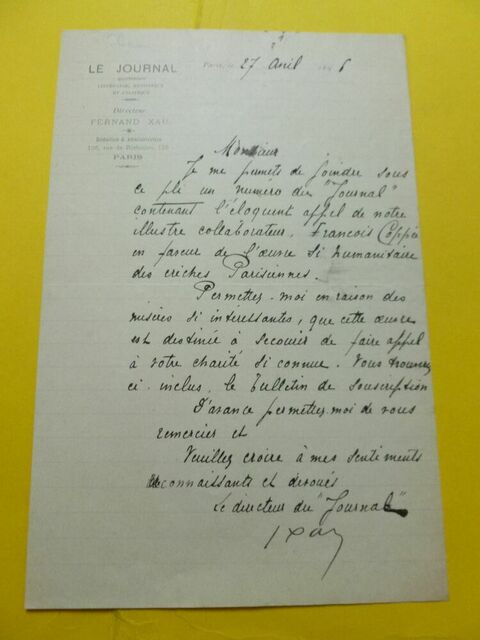 LE JOURNAL
QUOTIDIEN
LITTÉRAIRE, ARTISTIQUE
ET POLITIQUE
Directeur
FERNAND XAU
Rédaction & Administration
PARIS
Paris, le 27 Avril 6
Monsieur
Je me permets de joindre sous
ce pli un numéro du "Journal"
contenant l'éloquent appel de notre
illustre collaborateur, François Coppée
en faveur de l'œuvre si humanitaire
des crèches Parisiennes.
Permettez-moi en raison des
misères si interessantes, que cette œuvre
est destinée à secourir de faire appel
à votre charité si connue. Vous trouverez
ci-inclus, le bulletin de souscription
D'avance permettez-moi de vous
remercier et
Veuillez croire à mes sentiments
reconnaissants et dévoués
Le directeur du "Journal"
Xau